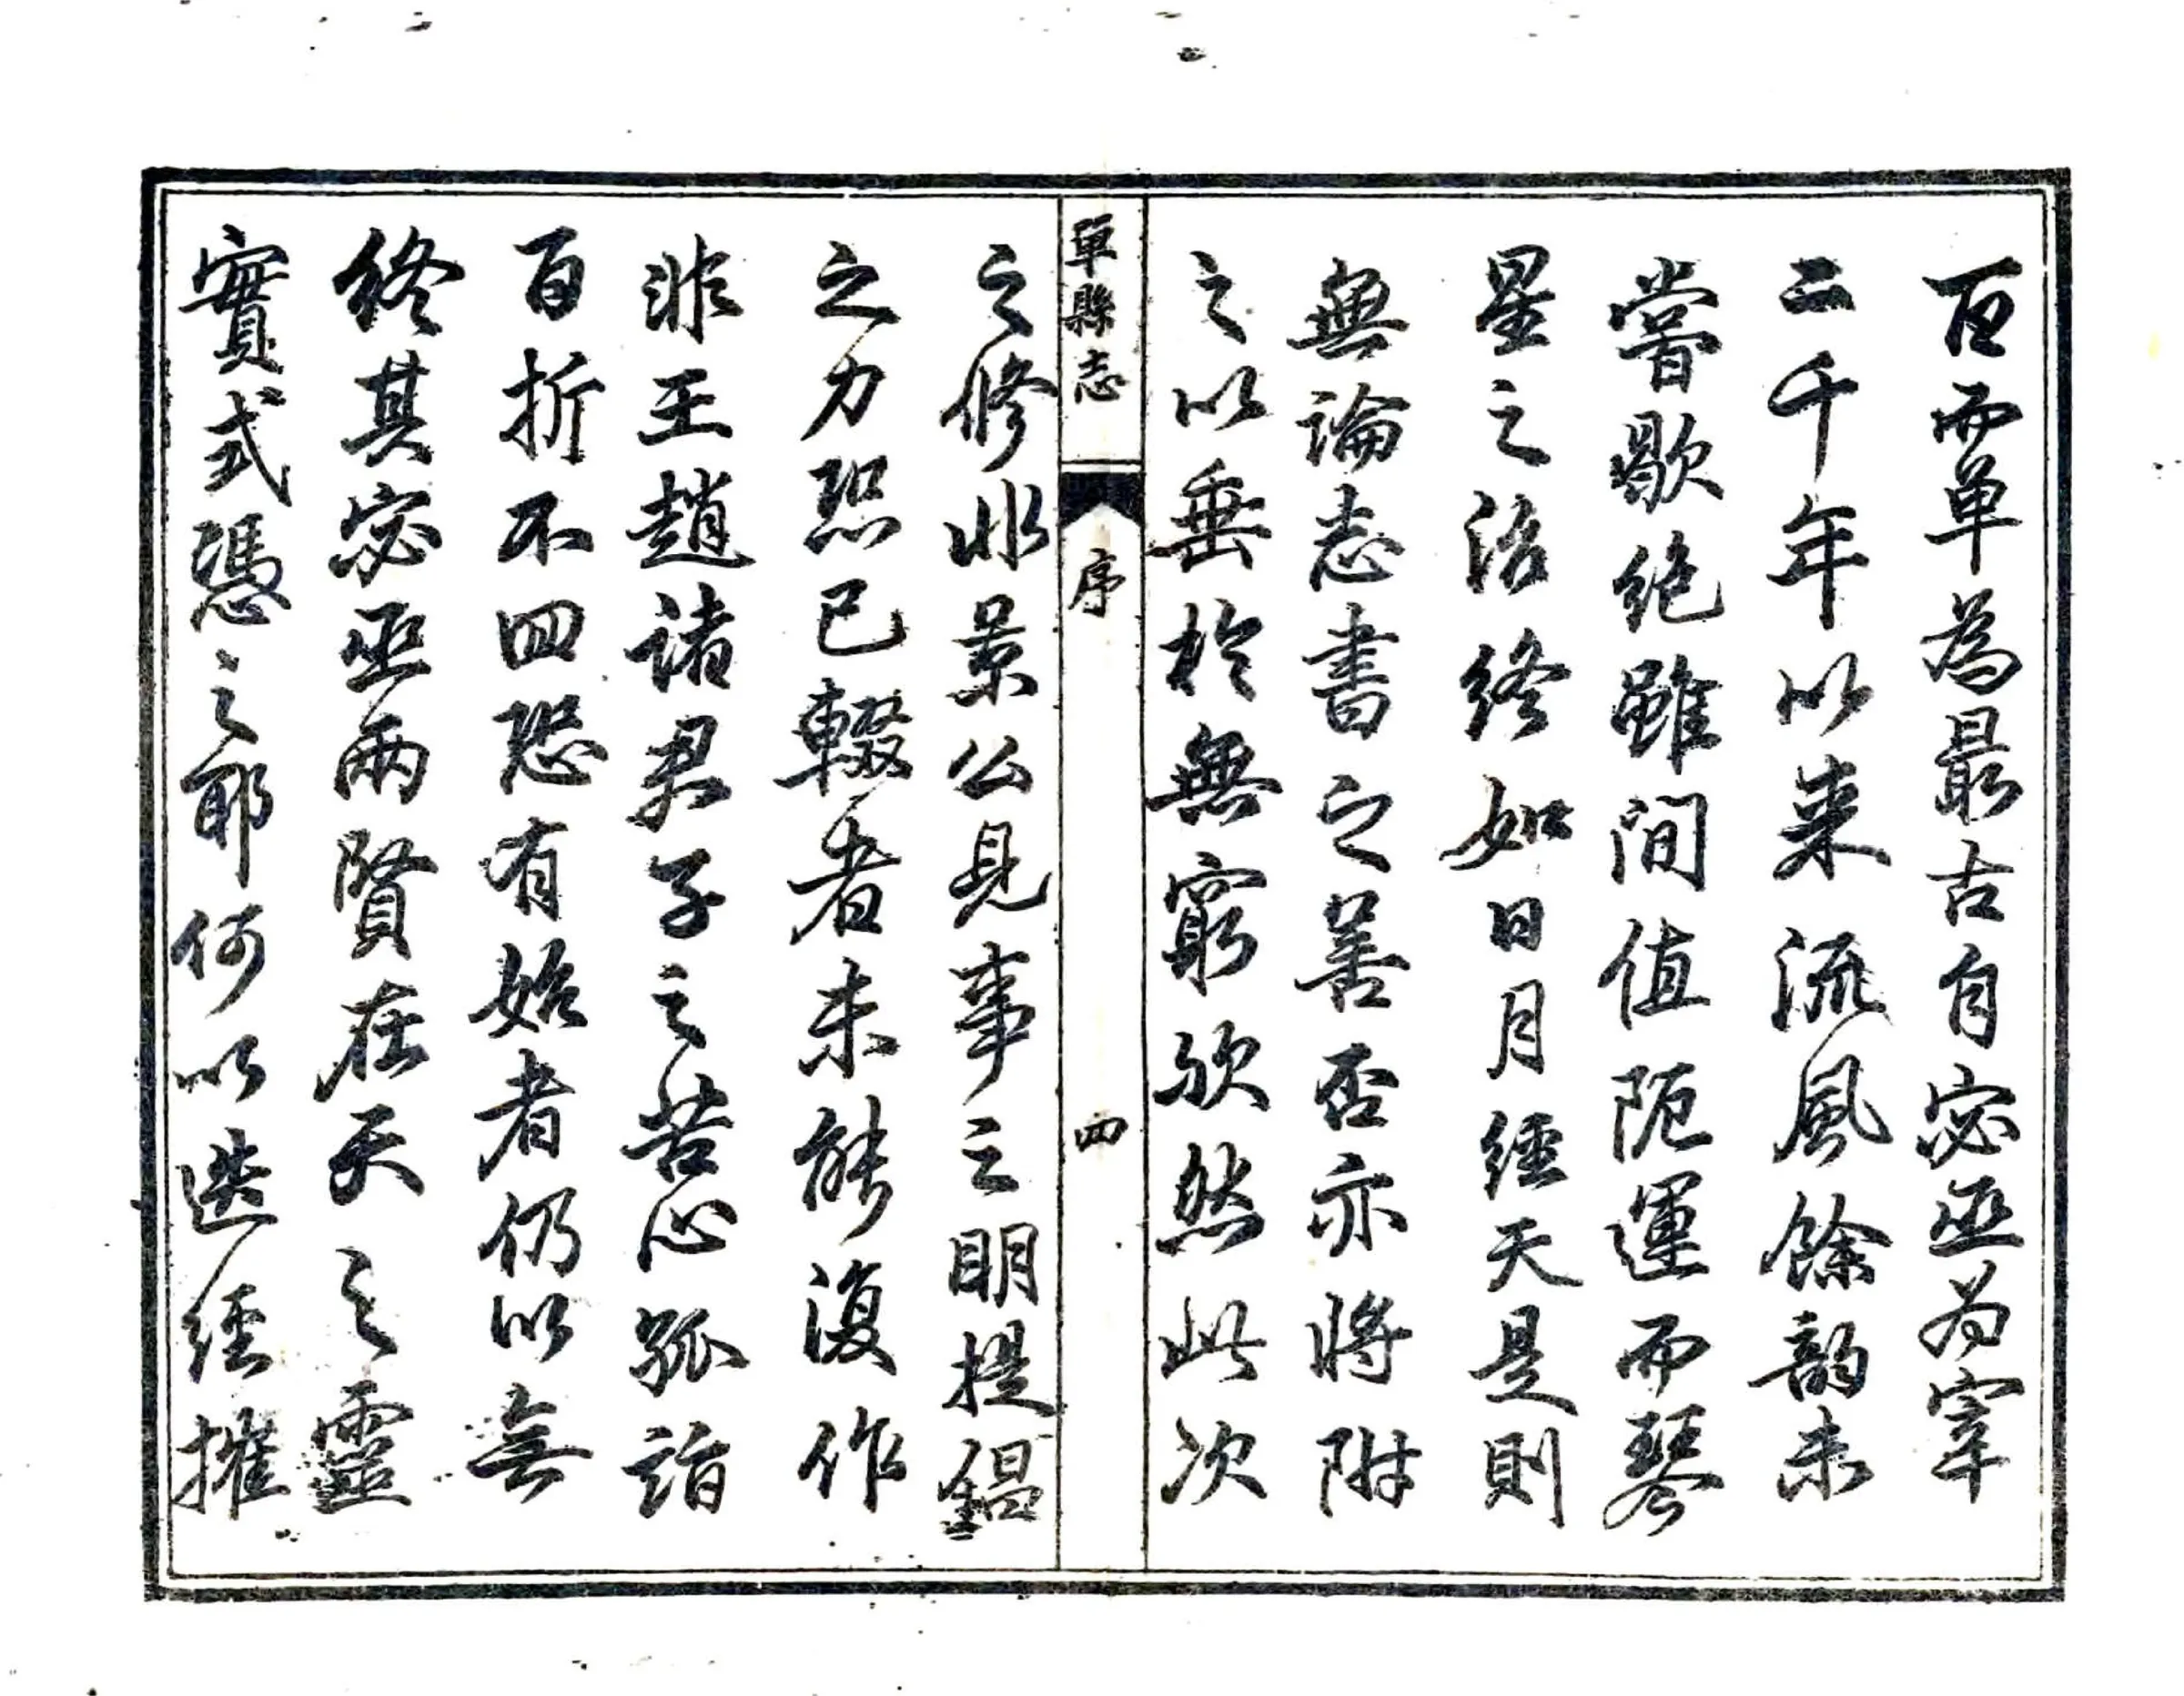 百而单為最古自宓巫为宰
二千年以来流風餘韵未
嘗歇绝雖间值阨運而琴
星之治终如日月經天是則
無論志書之善否亦将附
之以垂於無窮欤然此次
單縣志
序
四
之修非景公見事之明提鋁
之力恐已輟者未能復作
非王趙诸君子之苦心孤詣
百折不回恐有始者仍以無
终其宓巫兩賢在天之靈
實式憑之耶何以迭經摧